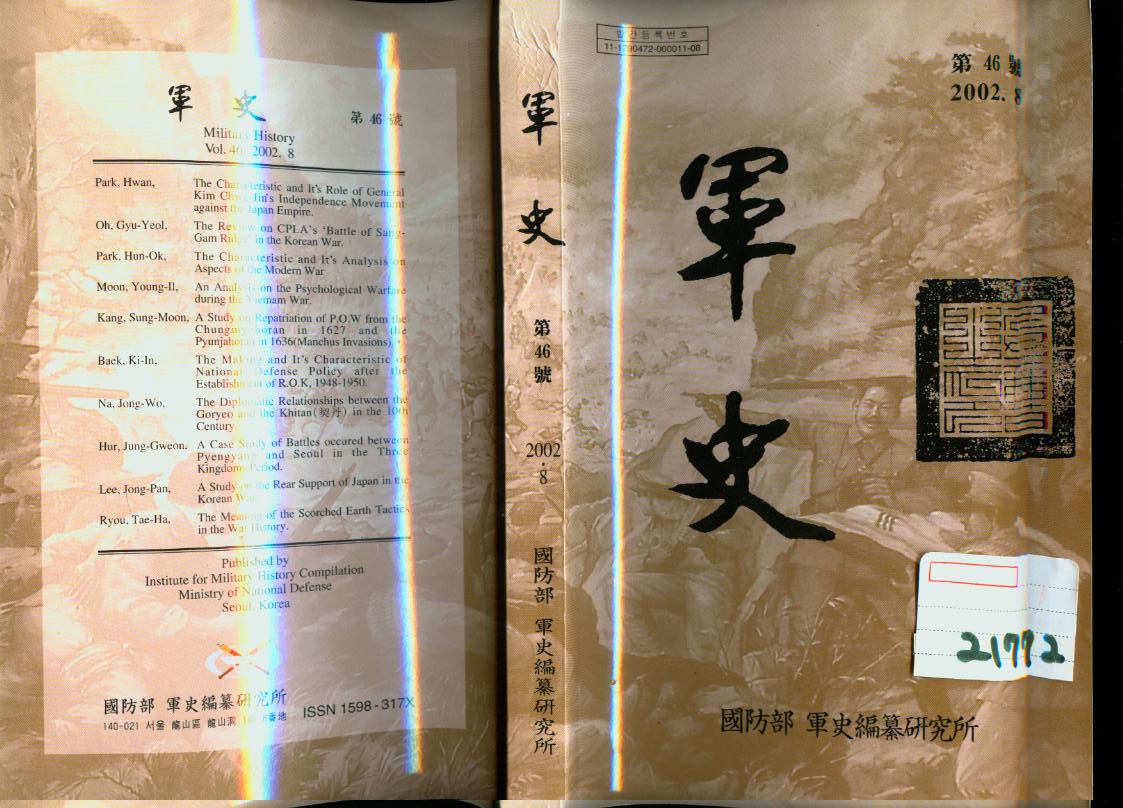 軍 史
第 46 號
Military History
Vol. 46 2002. 8
Park, Hwan,
The Characteristic and It's Role of General
Kim Chwa-Jin's Independence Movement
against the Japan Empire.
Oh, Gyu-Yeol,
The Review on CPLA's 'Battle of Sang-
Gam Ridge' in the Korean War.
Park, Hun-Ok,
The Characteristic and It's Analysis on
Aspects of the Modern War
Moon, Young-Il,
An Analysis on the Psychological Warfare
during the Vietnam War.
Kang, Sung-Moon,
A Study on Repatriation of P.O.W from the
in 1627 and the
in 1636(Manchus Invasions).
Baek, Ki-In,
The Making and It's Characteristic of
National Defense Policy after the
Establishment of R.O.K, 1948-1950.
Na, Jong-Wo,
The Diplomatic Relationships between the
Goryeo and the Khitan(契丹) in the 10th
Century.
Hur, Jung-Gweon,
A Case Study of Battles occured between
Pyengyang and Seoul in the Three
Kingdoms Period.
Lee, Jong-Pan,
A Study on the Rear Support of Japan in the
Korean War.
Ryou, Tae-Ha,
The Meaning of the Scorched Earth Tactics
in the War History.
Published by
Institute for Military History Compilation
Ministry of National Defense
Seoul, Korea
國防部 軍史編纂研究所
140-021 서울 龍山區 龍山洞
ISSN 1598-317X
軍 史
第 46 號
2002・8
國防部 軍史編纂研究所
발간등록번호
11-1290472-000011-08
第 46 號
2002. 8
軍
史
21772
國防部 軍史編纂研究所